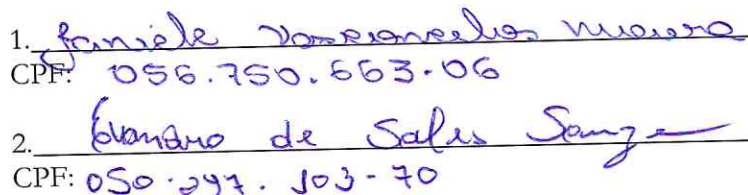 1. Janiele Vasconcelos Moura
CPF: 056.750.663-06
2. Evandro de Sales Souza
CPF: 050.297.103-70